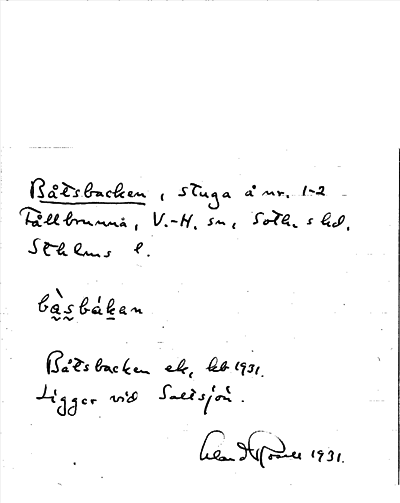 Båtsbacken, stuga å nr. 1-2
Fållbrunna, V.-H. sn, Soth. s hd,
Sthlms l.
bàsbákan
Båtsbacken ek, kb 1931.
Ligger vid Saltsjön.
1931.